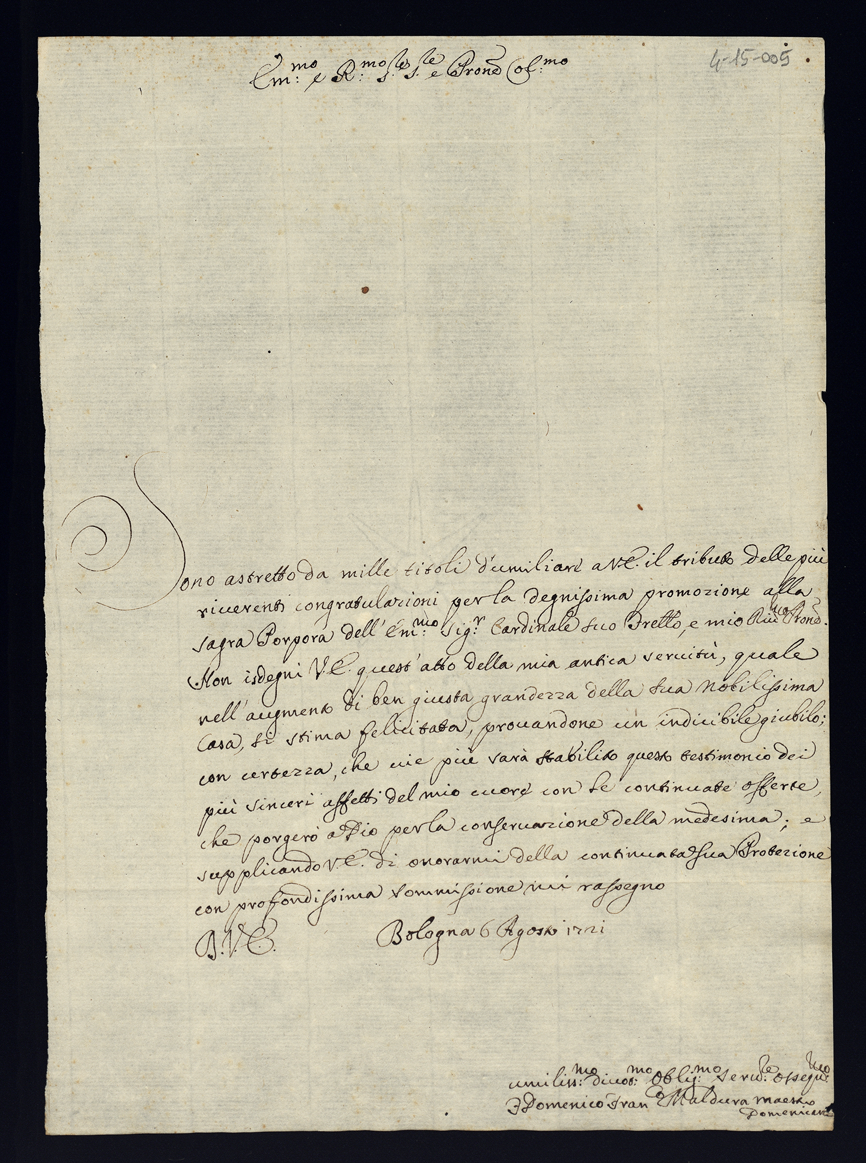 4-15-005
Em:mo e R:mo S.re S.re e Prone Col:mo
Sono astretto da mille titoli d'umiliare a V.E. il tributo delle più
riverenti congratulazioni per la degnissima promozione alla
sagra Porpora dell'Em:mo Sig.r Cardinale suo Fretto, e mio Prone.
Non isdegni V.E. quest'atto della mia antica servitù, quale
nell'augmento di ben giusta grandezza della sua Nobilissima
Casa, si stima felicitata, provandone un indicibile giubilo;
con certezza, che vie più sarà stabilito questo testimonio dei
più sinceri affetti del mio cuore con le continuate offerte,
che porgerò a Dio per la conservazione della medesima; e
supplicando V.E. di onorarmi della continuata sua Protezione
con profondissima sommissione mi rassegno
D. V. E. Bologna 6 Agosto 1721
umiliss:mo divot:mo Oblig:mo serv:re osseq:mo
F Domenico Fran Maldura maestro
Domenicano